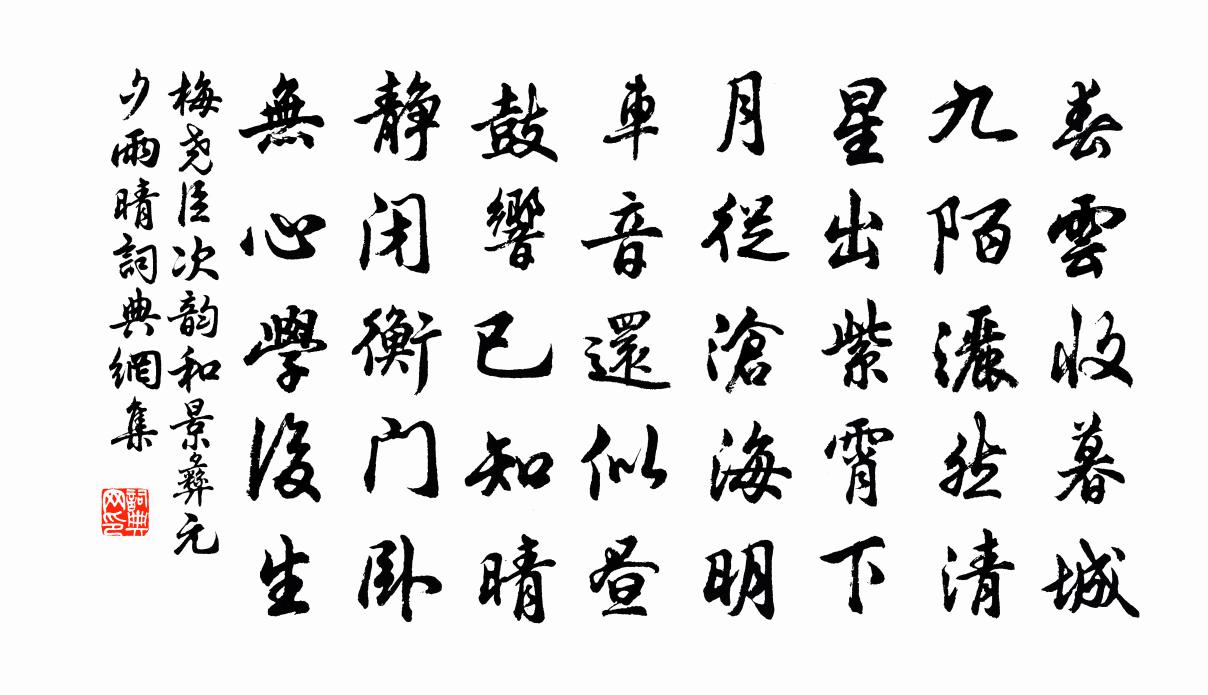 春雲收暮城
九陌灑然清
星出紫霄下
月從滄海明
車音還似晝
鼓響已知晴
靜闭衡门卧
無心學後生
梅尧臣次韵和景彝元
夕雨晴詞典網集
詞典网印